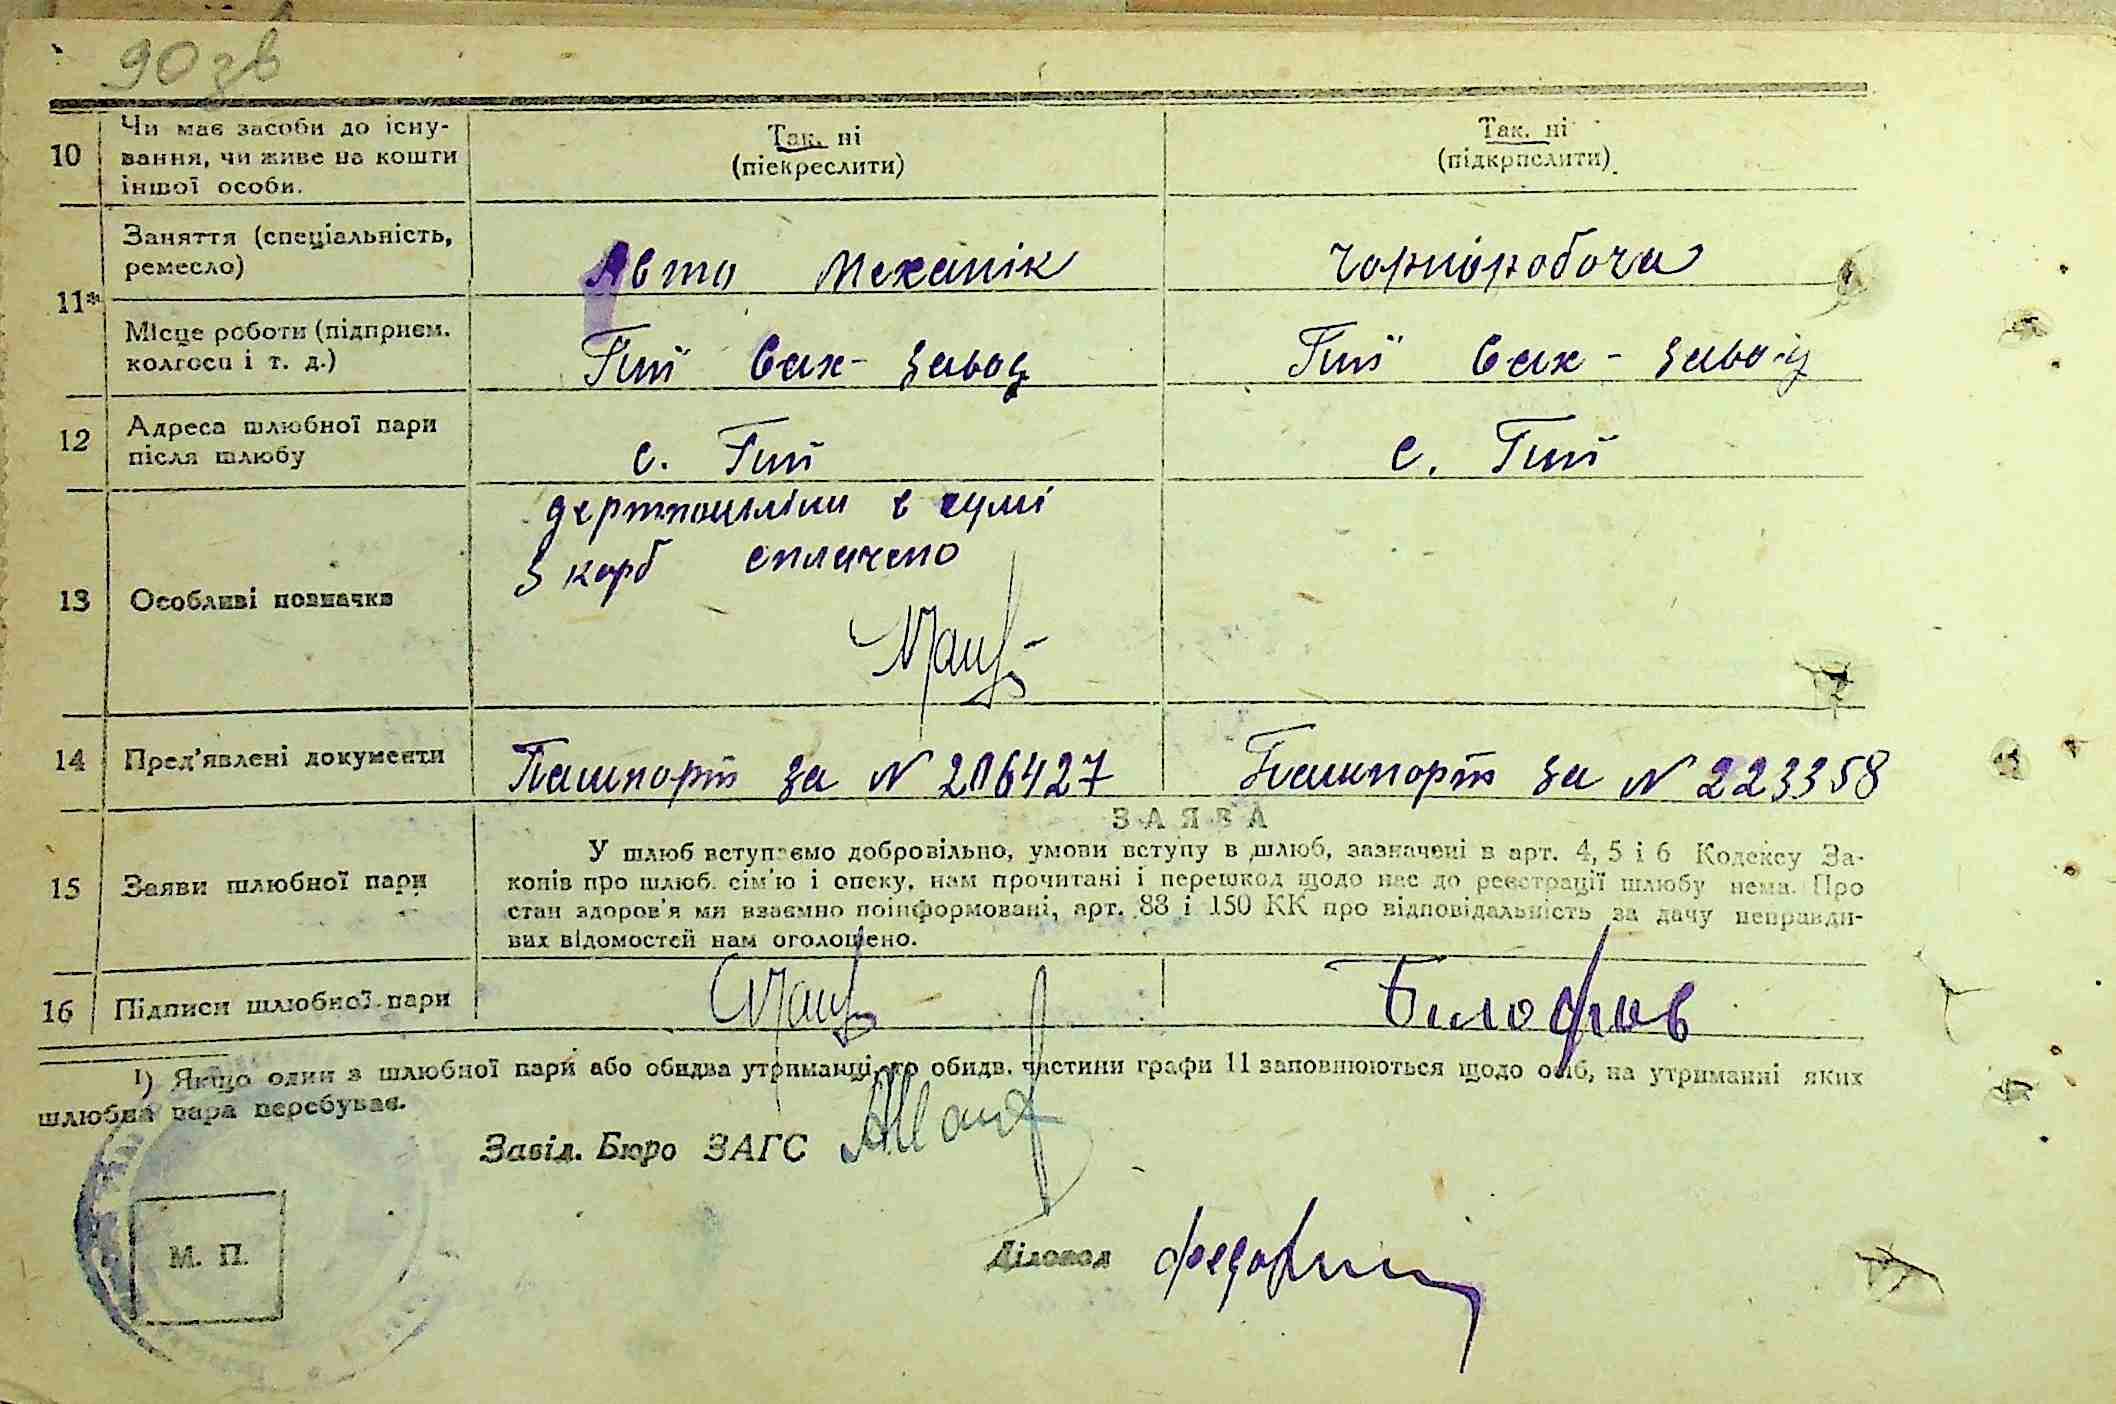 90 зв
10
Чи має засоби до існу-
вання, чи живе на кошти
іншої особи.
Так. ні
(піекреслити)
Так. ні
(підкрпслити)
11*
Заняття (спеціальність,
ремесло)
Авто механік
чорноробоча
Місце роботи (підприєм.
колгосп і т. д.)
Сах-завод
Сах-завод
12
Адреса шлюбної пари
після шлюбу
с.
с.
13
Особливі позначка
держпошліни в сумі
3 карб сплачено
14
Пред'явлені документи
Пашпорт за N 206427
Пашпорт за N 223358
ЗАЯВА
15
Заяви шлюбної пари
У шлюб вступаємо добровільно, умови вступу в шлюб, зазначені в арт. 4, 5 і 6 Кодексу За-
конів про шлюб. сім'ю і опеку, нам прочитані і перешкод щодо нас до реєстрації шлюбу нема. Про
стан здоров'я ми взаємно поінформовані, арт. 88 і 150 КК про відповідальність за дачу неправди-
вих відомостей нам оголошено.
16
Підписи шлюбної пари
1) Якщо один з шлюбної пари або обидва утриманці, то обидв. частини графи 11 заповнюються щодо осіб, на утриманні яких
шлюбна пара перебуває.
Завід. Бюро ЗАГС
М. П.
Діловод